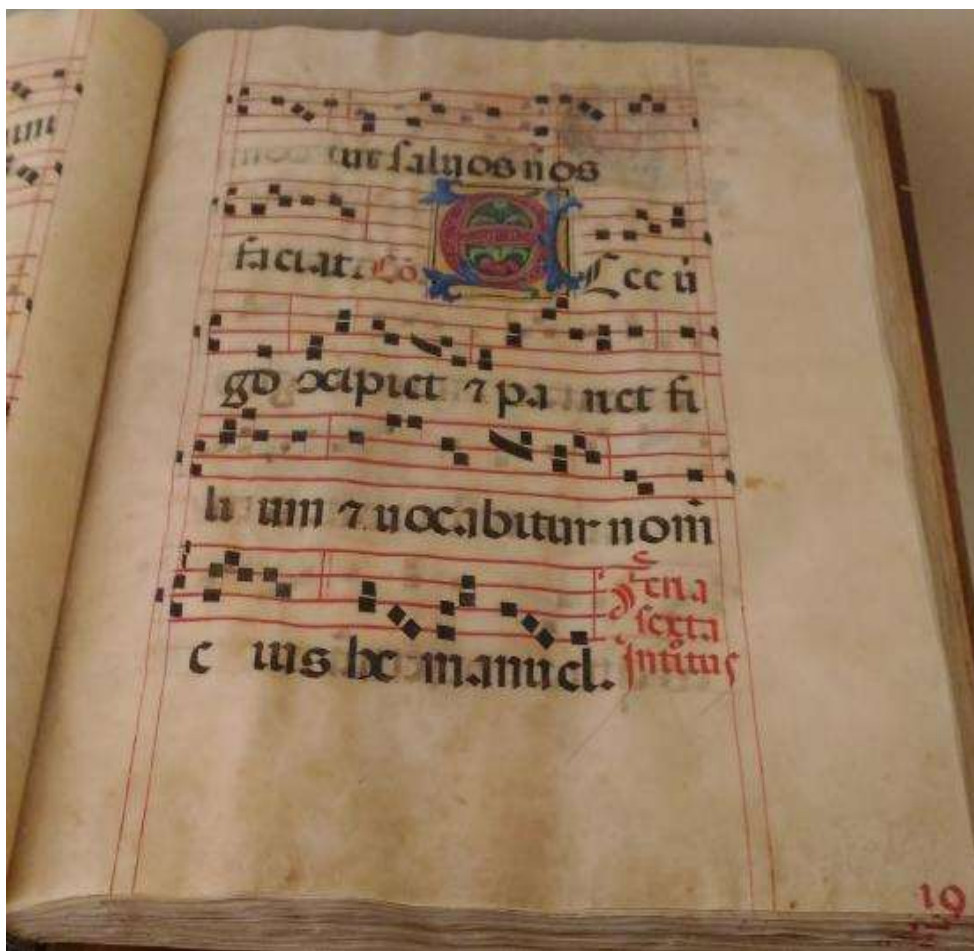 ut saluos n̄os
faciat. Cō. E Cce ū
go ↄcipiet ⁊ pa riet fi
li um ⁊ uocabitur nom̄
e ius he manuel. feria
sexta
Introitus
19